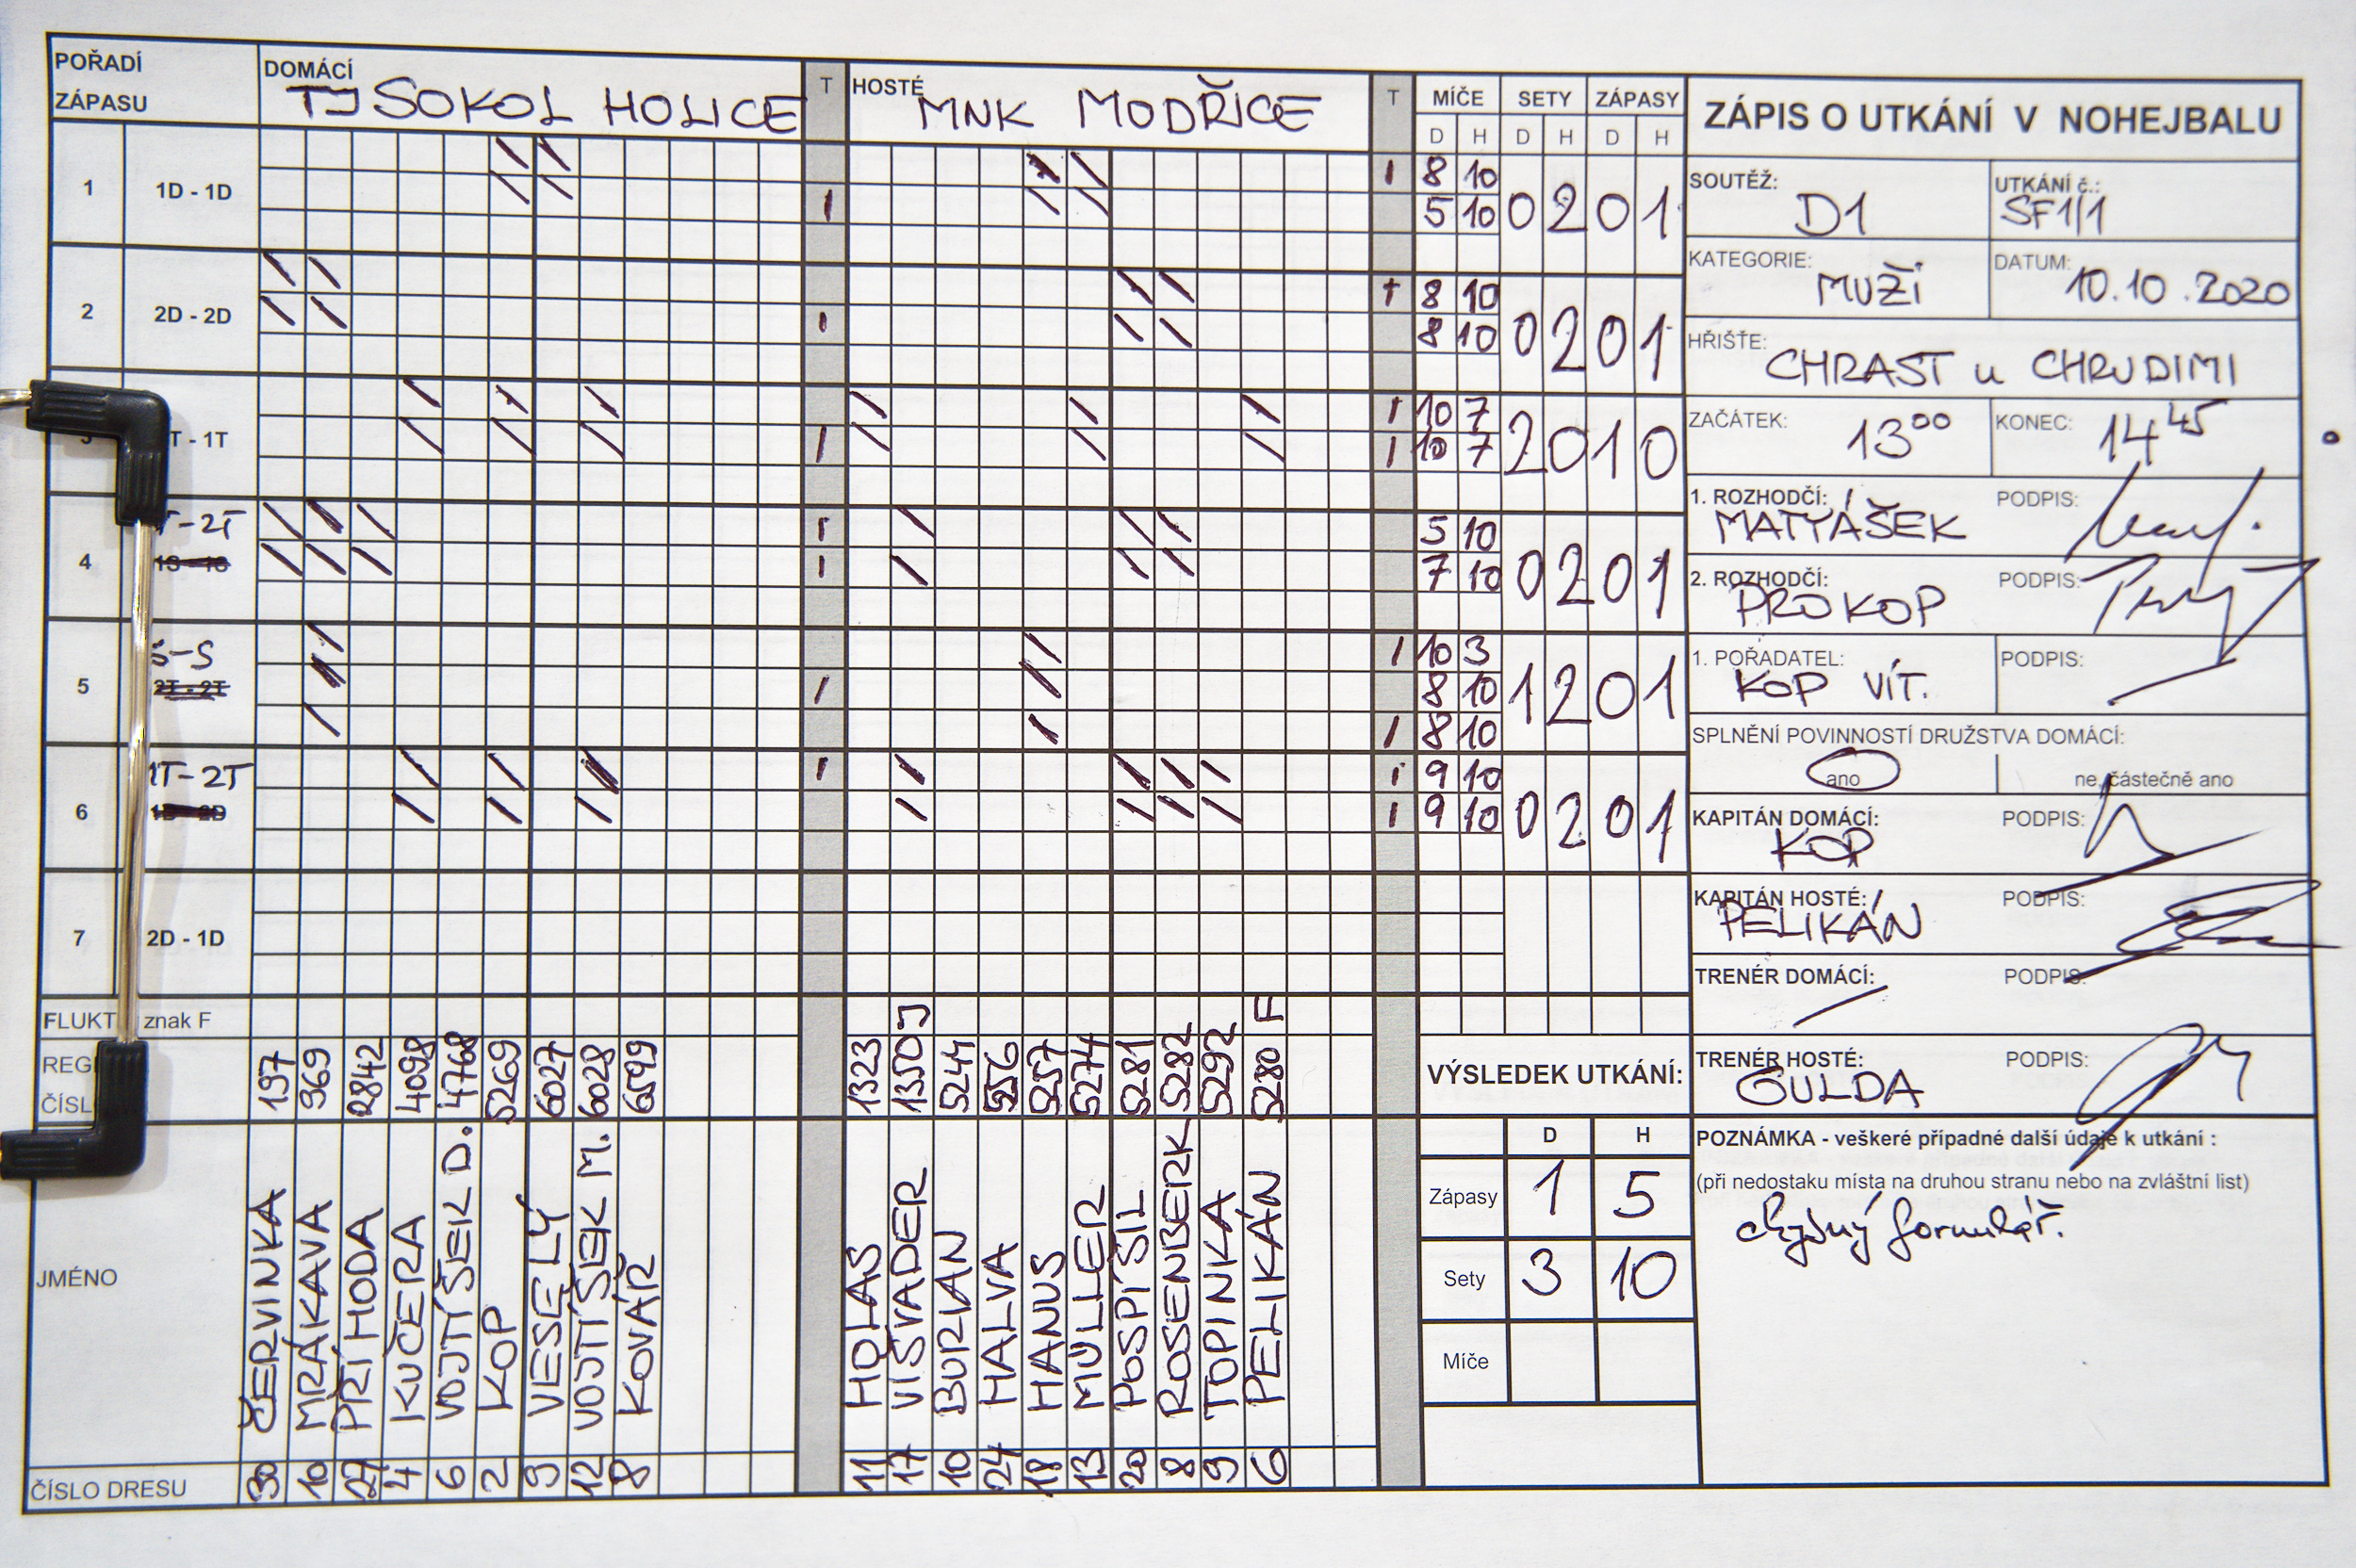 POŘADÍ ZÁPASU
DOMÁCÍ TJ SOKOL HOLICE
T
HOSTÉ MNK MODŘICE
T
MÍČE SETY ZÁPASY
D H D H D H
1 1D - 1D
8 10
5 10
0 2 0 1
2 2D - 2D
8 10
8 10
0 2 0 1
3 T - 1T
10 7
10 7
2 0 1 0
4 T-2T
5 10
7 10
0 2 0 1
5 S-S
2T - 2T
10 3
8 10
8 10
1 2 0 1
6 1T-2T
9 10
9 10
0 2 0 1
7 2D - 1D
FLUKT znak F
J F
REG ČÍSL
197 369 2842 4098 4768 5269 6027 6028 6549
1323 1350 5244 5257 5274 5281 5282 5292 5280
JMÉNO
ČERVINKA
MRÁKAVA
PŘÍHODA
KUČERA
VOJTÍŠEK D.
KOP
VESELÝ
VOJTÍŠEK M.
KOVÁŘ
HOLAS
VIŠVADER
BURIAN
HALVA
HANUS
MÜLLER
POSPÍŠIL
ROSENBERK
TOPINKA
PELIKÁN
ČÍSLO DRESU
30 10 27 4 6 2 9 12 8
11 17 10 24 18 13 20 8 9 6
VÝSLEDEK UTKÁNÍ:
D H
Zápasy 1 5
Sety 3 10
Míče
ZÁPIS O UTKÁNÍ V NOHEJBALU
SOUTĚŽ: D1
UTKÁNÍ č.: SF1/1
KATEGORIE: MUŽI
DATUM: 10.10.2020
HŘIŠTE: CHRAST u CHRUDIMI
ZAČÁTEK: 13⁰⁰
KONEC: 14⁴⁵
1. ROZHODČÍ: MATYÁŠEK
PODPIS:
2. ROZHODČÍ: PROKOP
PODPIS:
1. POŘADATEL: KOP VÍT.
PODPIS:
SPLNĚNÍ POVINNOSTÍ DRUŽSTVA DOMÁCÍ:
ano
ne, částečně ano
KAPITÁN DOMÁCÍ: KOP
PODPIS:
KAPITÁN HOSTÉ: PELIKÁN
PODPIS:
TRENÉR DOMÁCÍ:
PODPIS:
TRENÉR HOSTÉ: GULDA
PODPIS:
POZNÁMKA - veškeré případné další údaje k utkání :
(při nedostaku místa na druhou stranu nebo na zvláštní list)
chybný formulář.